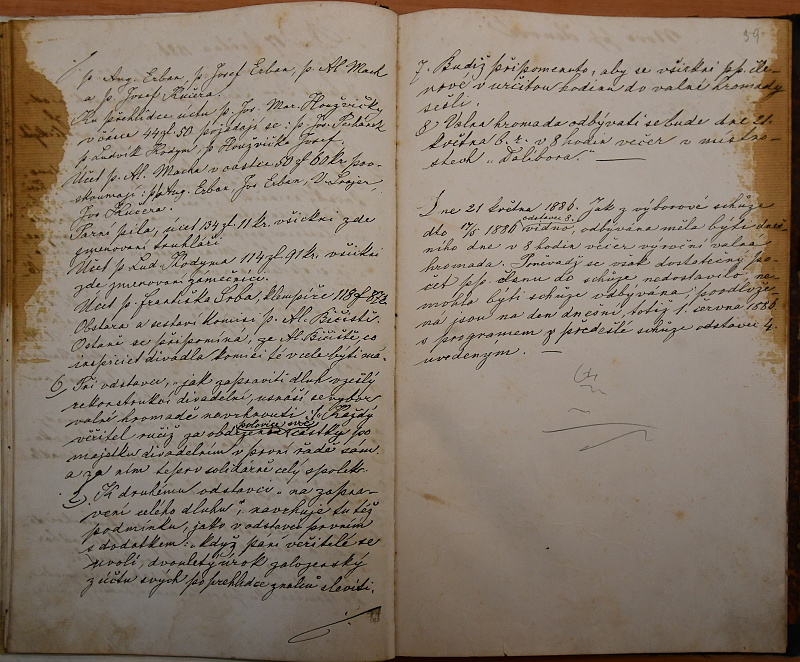 p. Aug. Erban, p. Josef Erban, p. Al. Mach
a p. Josef Kučera.
Ku přehlídce účtu p. Jos. Mar. Honzvičky
v čásce 44 zl 50 pojedají se: p. Jos.
p Ludvík Hodyn, p. Josef.
Účet p. Al. Macha v částce 50 zl 60 kr. pro-
skoumají: p. Aug. Erban, Jos Erban, V. Šrajer,
Jos Kučera.
Parní pila, účet 134 zl. 11 kr. všickni zde
jmenovaní truhláři
Účet p. Lud. Hodyna 114 zl 91 kr. všickni
zde jmenovaní zámečníci.
Účet p. Františka Srba, klempíře 118 zl
Obstará a sestaví komisi p. Al.
Ostatně se připomíná, že Al. co
inspicient divadla komisi té v čele býti má.
6, Při odstavci, „jak zapraviti dluh vzešlý
rekonstrukcí divadelní, usnáší se výbor
valné hromadě navrhnouti: 1, Každý
věřitel ručiž za polovici své částky po
majetku divadelním v první řadě sám
a za ním teprv solidárně celý spolek.
2, K druhému odstavci „na zapra-
vení celého dluhu“, navrhuje tutéž
podmínku, jako v odstavci prvním
s dodatkem: „když páni věřitelé se
uvolí, dvouletý úrok založenský
z účtu svých po přehlídce znalců sleviti.
39
7. Budiž připomenuto, aby se všickni pp. čle-
nové v určitou hodinu do valné hromady
sešli.
8 Valná hromada odbývati se bude dne 21.
května b. r. v 8 hodin večer v místno-
stech „Dalibora.“ —
Dne 21 května 1886. Jak z výborové schůze
odstavec 8.
dto 17/5 1886 vidno, odbývána měla býti dneš-
ního dne v 8 hodin večer výroční valná
hromada. Poněvadž se však dostatečný po-
čet pp. členů do schůze nedostavilo, ne-
mohla býti schůze odbývána; poodlože-
ná jsou na den dnešní, totiž 1. června 1886
s programem z předešlé schůze odstavci 4.
uvedeným. —